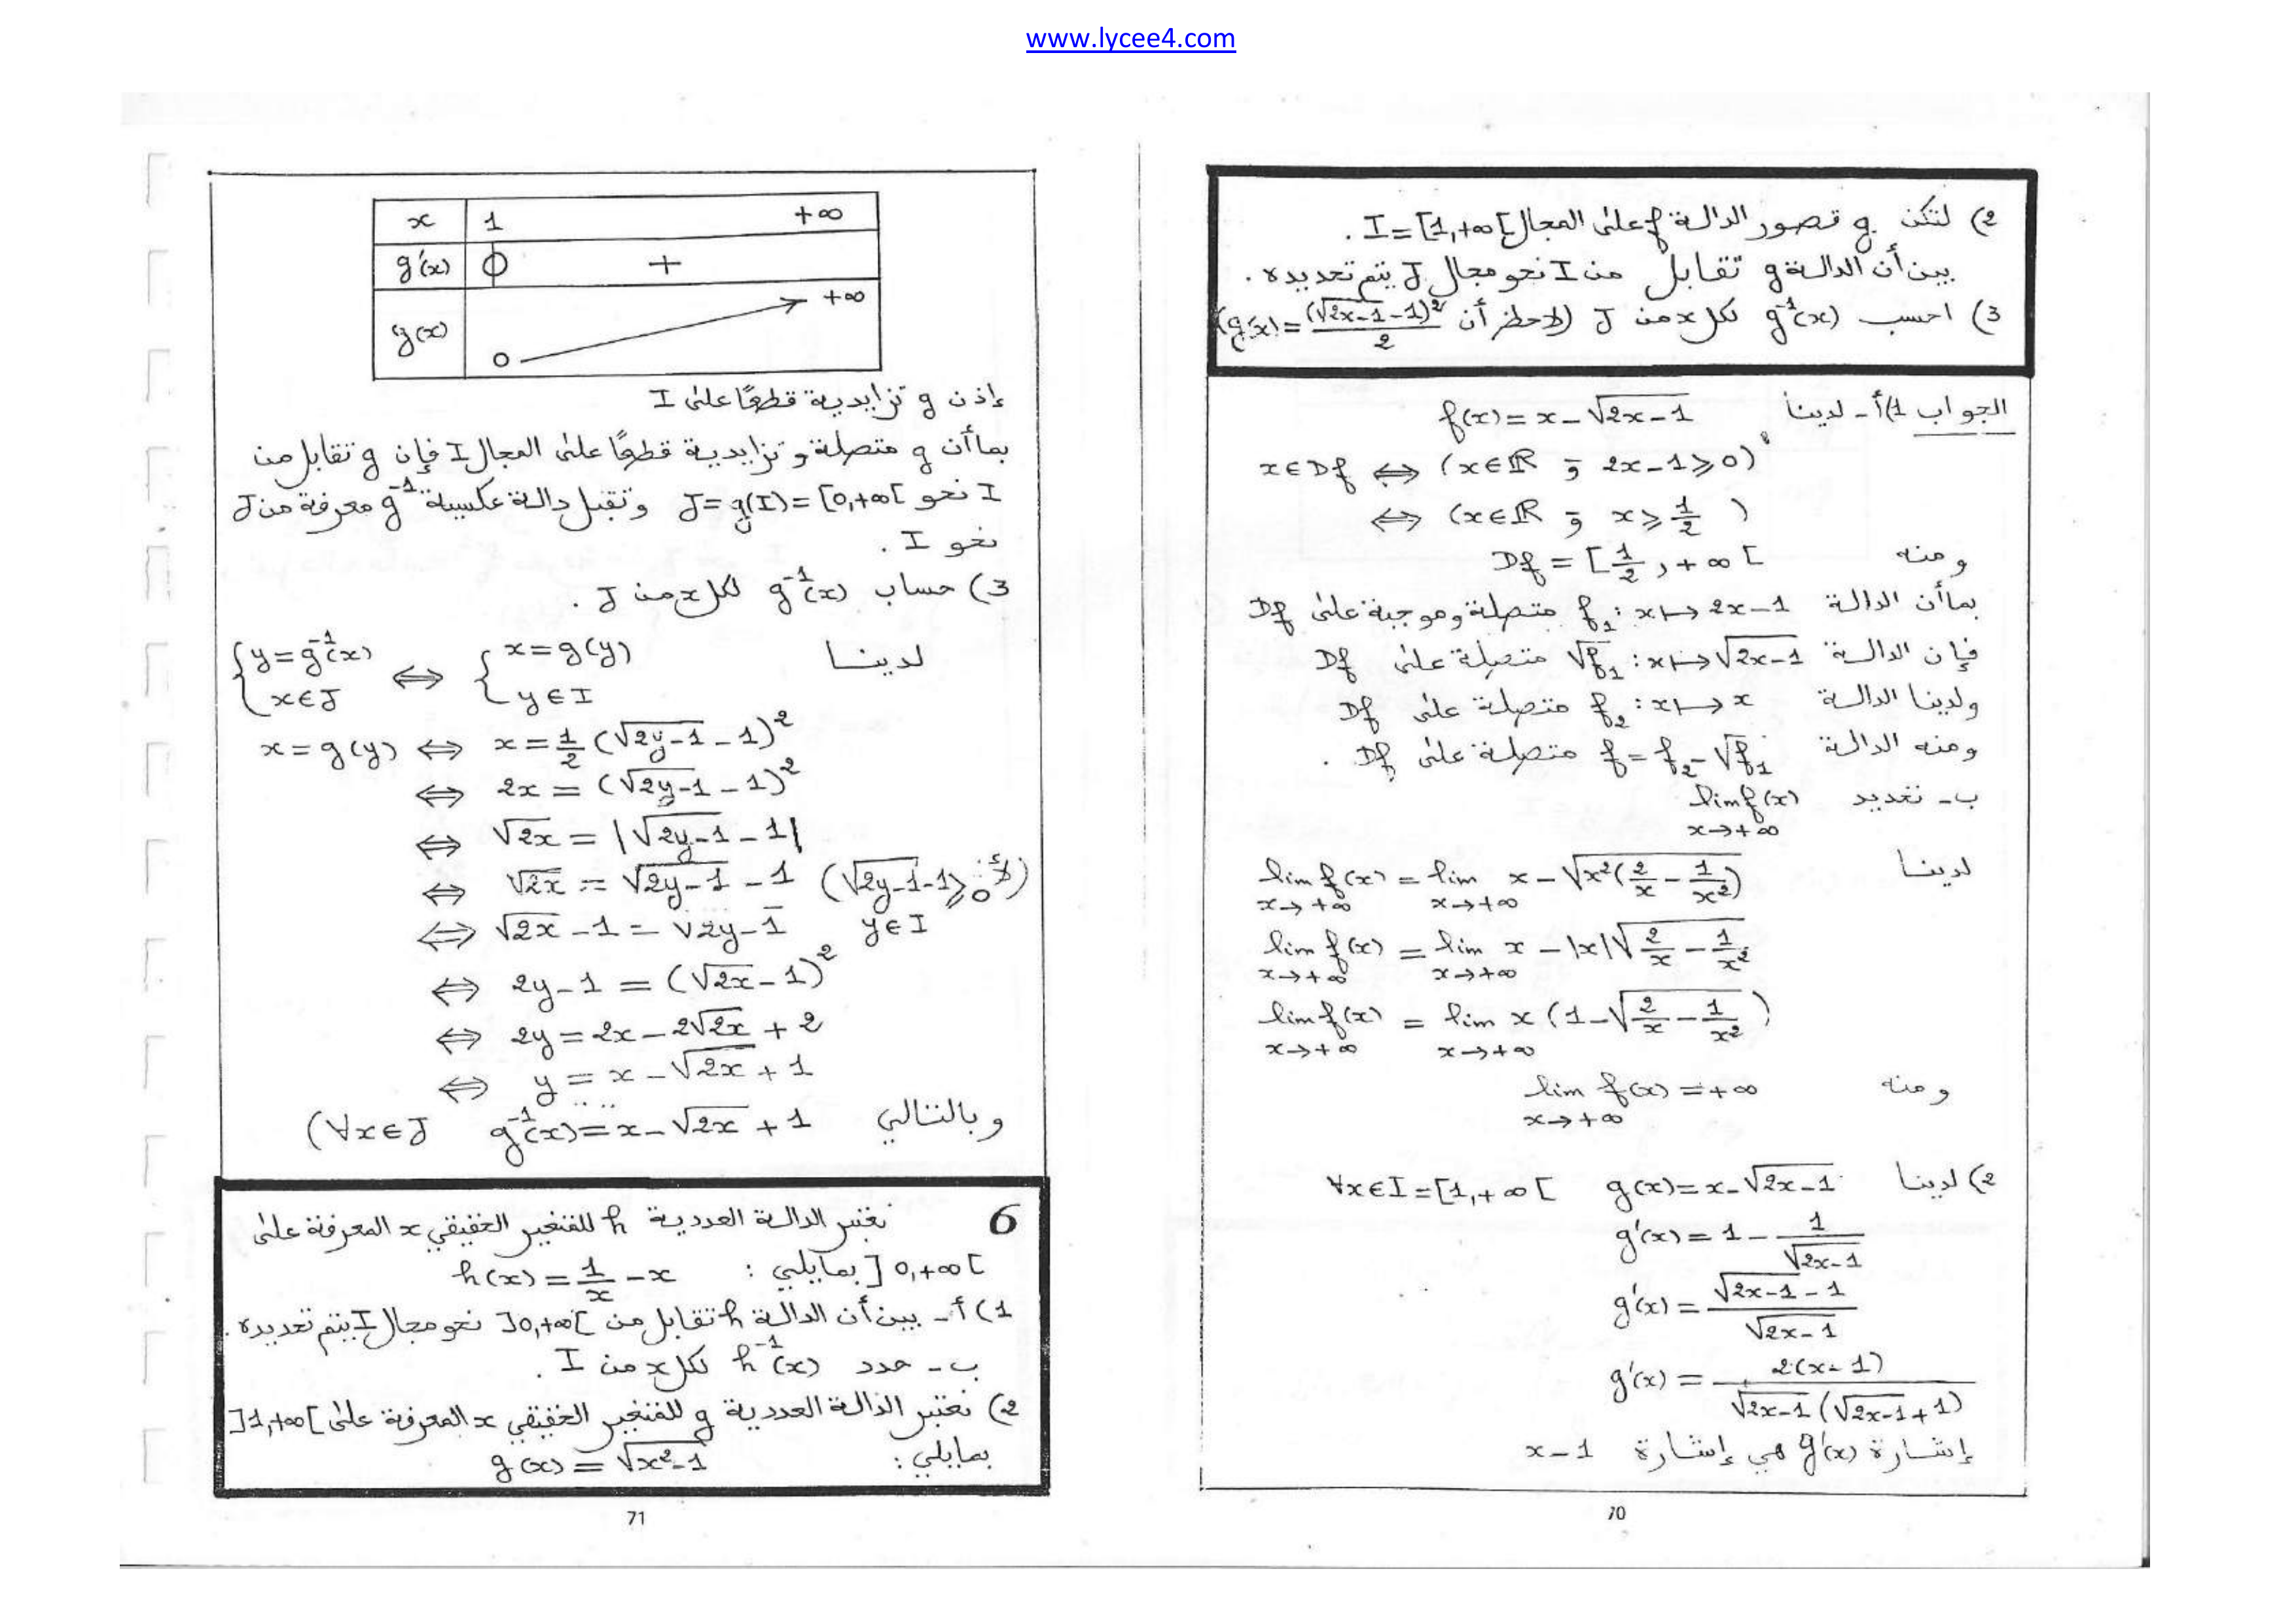 www.lycee4.com
2) لتكن g قصور الدالة f على المجال I=[1,+∞[ .
بين أن الدالة g تقابل من I نحو مجال J يتم تحديده .
3) احسب g⁻¹(x) لكل x من J (لاحظ أن g(x)=(√(2x-1)-1)²/2)
الجواب 1) أ- لدينا f(x)=x-√(2x-1)
x∈Df ⇔ (x∈ℝ و 2x-1≥0)
⇔ (x∈ℝ و x≥1/2)
ومنه Df=[1/2,+∞[
بما أن الدالة f₁: x↦2x-1 متصلة وموجبة على Df
فإن الدالة √f₁: x↦√(2x-1) متصلة على Df
ولدينا الدالة f₂: x↦x متصلة على Df
ومنه الدالة f=f₂-√f₁ متصلة على Df .
ب- تحديد lim f(x) x→+∞
لدينا lim f(x) x→+∞ = lim x→+∞ x-√(x²(2/x-1/x²))
lim f(x) x→+∞ = lim x→+∞ x-|x|√(2/x-1/x²)
lim f(x) x→+∞ = lim x→+∞ x(1-√(2/x-1/x²))
ومنه lim f(x)=+∞ x→+∞
2) لدينا g(x)=x-√(2x-1) ∀x∈I=[1,+∞[
g'(x)=1-1/√(2x-1)
g'(x)=(√(2x-1)-1)/√(2x-1)
g'(x)=2(x-1)/(√(2x-1)(√(2x-1)+1))
إشارة g'(x) هي إشارة x-1
70
x 1 +∞
g'(x) 0 +
g(x) 0 +∞
إذن g تزايدية قطعًا على I
بما أن g متصلة و تزايدية قطعًا على المجال I فإن g تقابل من
I نحو J=g(I)=[0,+∞[ وتقبل دالة عكسية g⁻¹ معرفة من J
نحو I .
3) حساب g⁻¹(x) لكل x من J .
لدينا {y=g⁻¹(x) x∈J ⇔ {x=g(y) y∈I
x=g(y) ⇔ x=1/2(√(2y-1)-1)²
⇔ 2x=(√(2y-1)-1)²
⇔ √2x=|√(2y-1)-1|
⇔ √2x=√(2y-1)-1 (√(2y-1)-1≥0 لأن)
⇔ √2x-1=√2y-1 y∈I
⇔ 2y-1=(√2x-1)²
⇔ 2y=2x-2√2x+2
⇔ y=x-√2x+1
وبالتالي g⁻¹(x)=x-√2x+1 (∀x∈J
6 نعتبر الدالة العددية h للمتغير الحقيقي x المعرفة على
]0,+∞[ بمايلي : h(x)=1/x-x
1) أ- بين أن الدالة h تقابل من ]0,+∞[ نحو مجال I يتم تحديده .
ب- حدد h⁻¹(x) لكل x من I .
2) نعتبر الدالة العددية g للمتغير الحقيقي x المعرفة على ]1,+∞[
بمايلي : g(x)=√(x²-1)
71